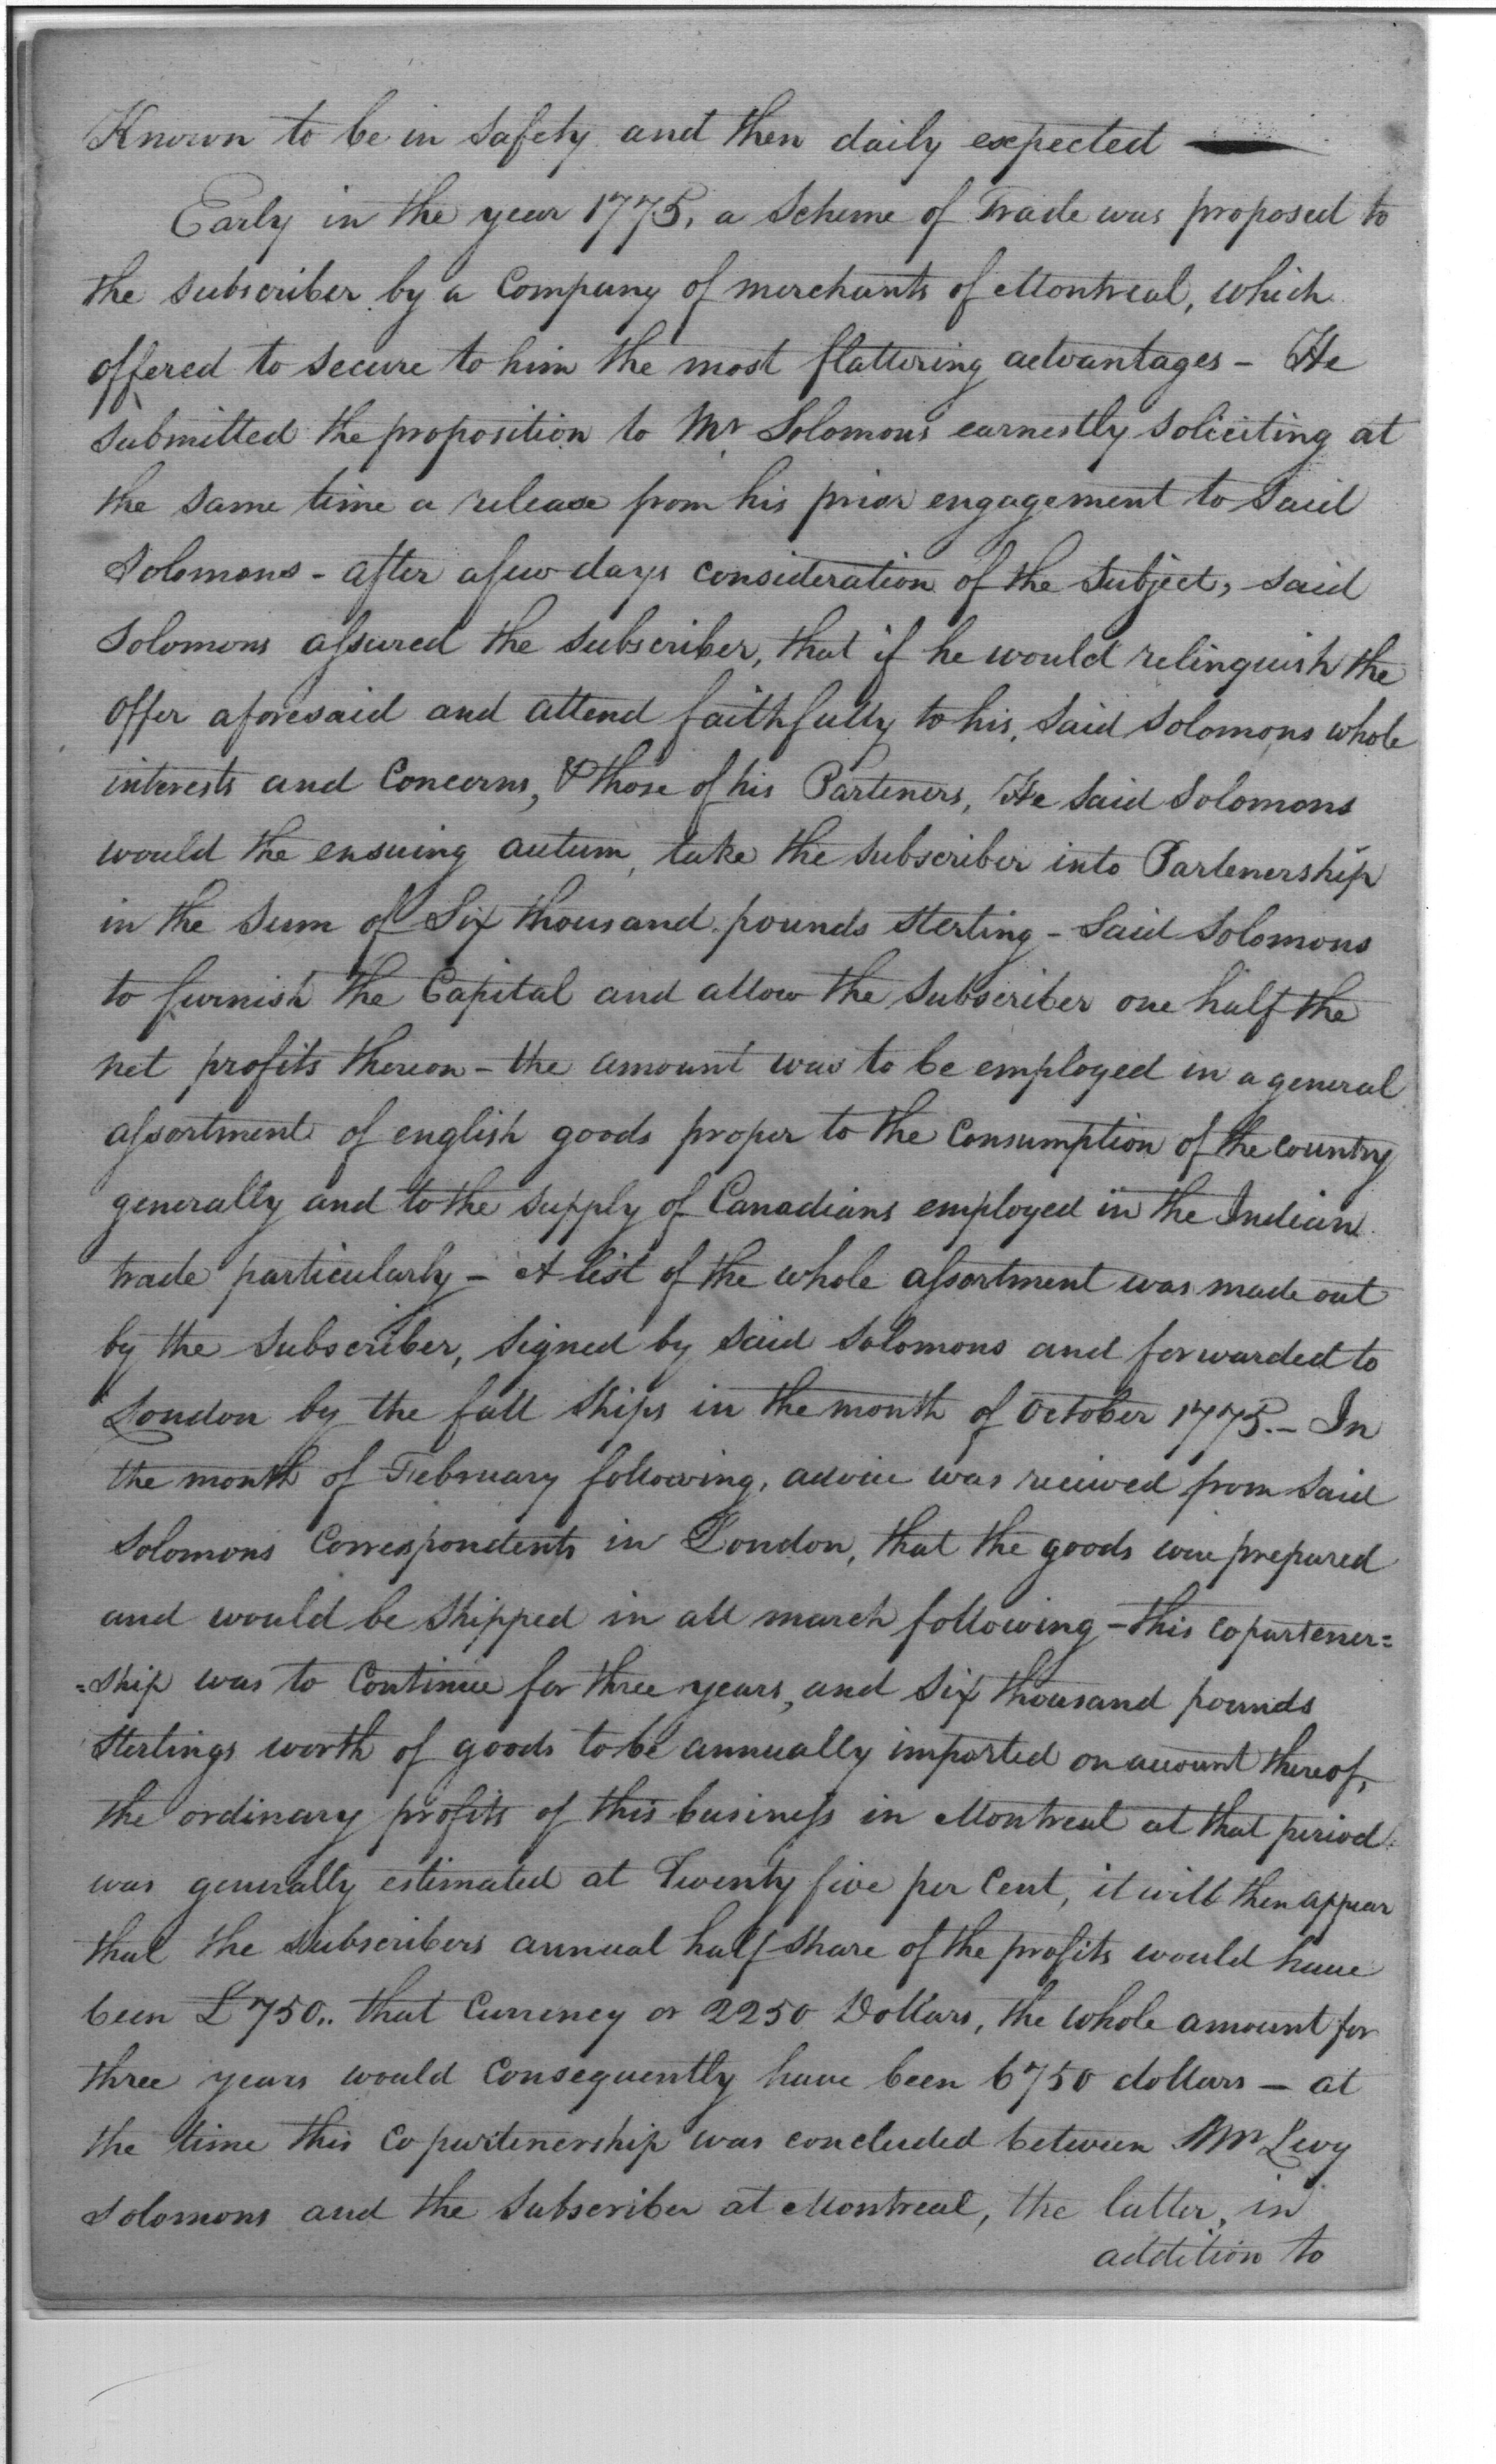 Known to be in safety and then daily expected —
Early in the year 1775, a Scheme of Trade was proposed to
the subscriber by a Company of merchants of Montreal, which
offered to secure to him the most flattering advantages – He
submitted the proposition to Mr Solomons earnestly soliciting at
the same time a release from his prior engagement to said
Solomons – after a few days consideration of the subject, said
Solomons assured the subscriber, that if he would relinquish the
offer aforesaid and attend faithfully to his, said Solomons whole
interests and Concerns, & those of his Parteners, He said Solomons
would the ensuing autum, take the subscriber into Partenership
in the sum of Six thousand pounds sterling – said Solomons
to furnish the Capital and allow the subscriber one half the
net profits thereon – the amount was to be employed in a general
assortment of english goods proper to the Consumption of the country
generally and to the supply of Canadians employed in the Indian
trade particularly – A list of the whole assortment was made out
by the subscriber, signed by said Solomons and forwarded to
London by the fall ships in the month of October 1775. – In
the month of February following, advice was recieved from said
Solomons Correspondents in London, that the goods were prepared
and would be shipped in all march following – this copartener=
=ship was to Continue for three years, and six thousand pounds
sterlings worth of goods to be annually imported on account thereof,
the ordinary profits of this business in Montreal at that period
was generally estimated at Twenty five per Cent, it will then appear
that the subscribers annual half share of the profits would have
been £750.. that Currency or 2250 Dollars, the whole amount for
three years would Consequently have been 6750 dollars – at
the time this Copartenership was concluded between Mr Levy
Solomons and the subscriber at Montreal, the latter, in
addition to